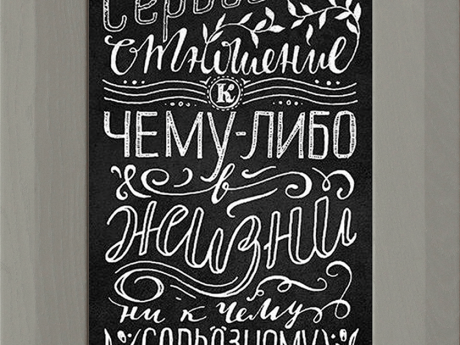 отношение
к
ЧЕМУ-ЛИБО
в
жизни
ни к чему
СЕРЬЁЗНОМУ